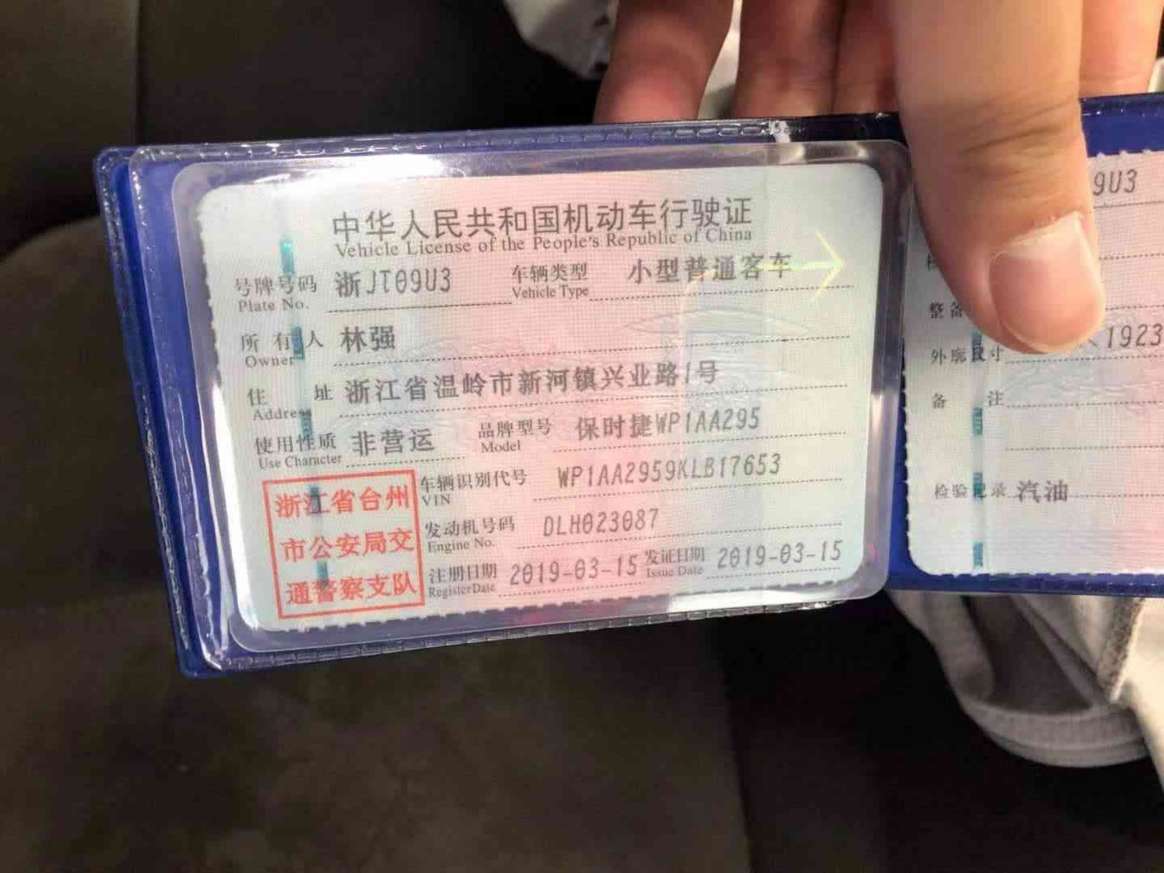 中华人民共和国机动车行驶证
Vehicle License of the People's Republic of China
号牌号码 浙JT09U3 车辆类型 小型普通客车
Plate No. Vehicle Type
所有人 林强
Owner
住址 浙江省温岭市新河镇兴业路1号
Address
使用性质 非营运 品牌型号 保时捷WP1AA295
Use Character Model
浙江省台州
市公安局交
通警察支队
车辆识别代号 WP1AA2959KLB17653
VIN
发动机号码 DLH023087
Engine No.
注册日期 2019-03-15 发证日期 2019-03-15
Register Date Issue Date
9U3
整备
外廓尺寸 1923
备注
检验记录 汽油